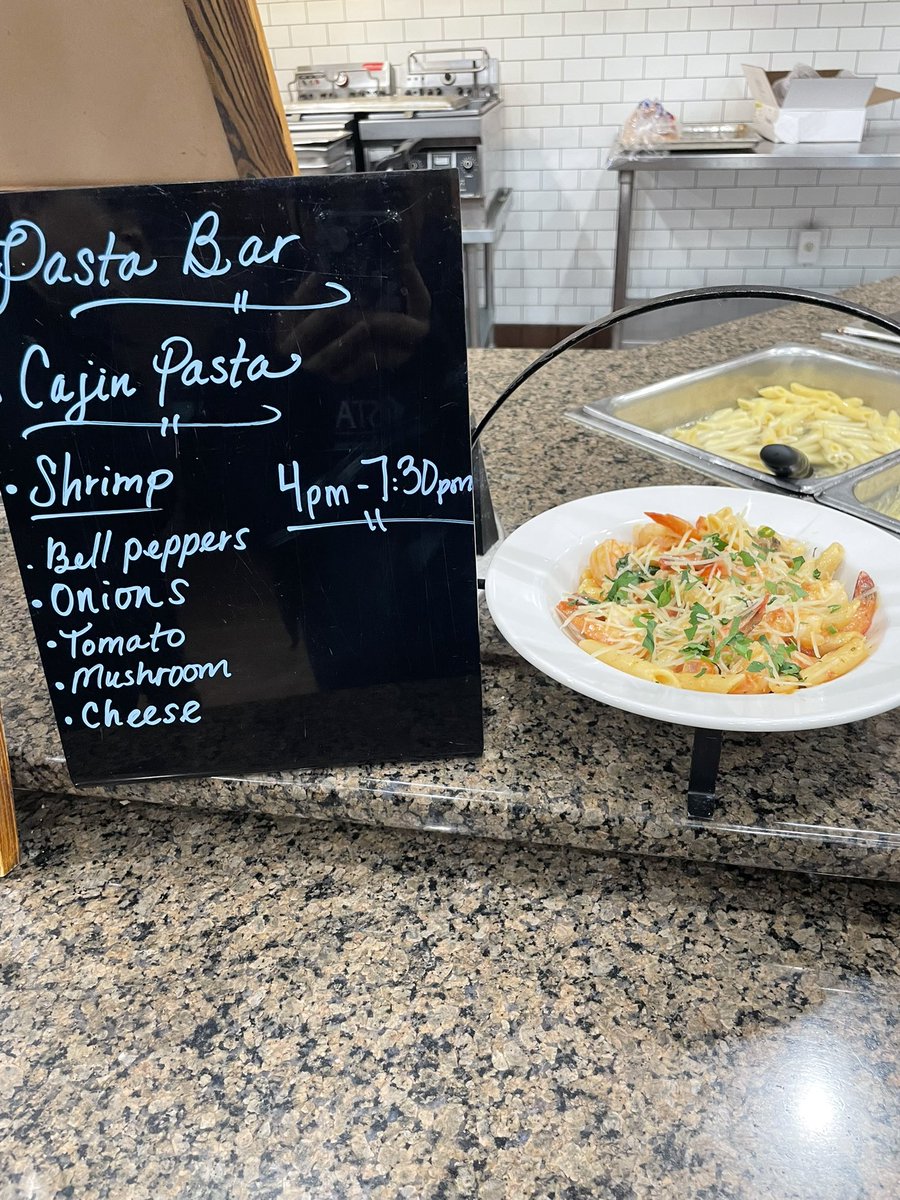 Pasta Bar
Cajin Pasta
• Shrimp 4pm-7:30pm
• Bell peppers
• Onions
• Tomato
• Mushroom
• Cheese